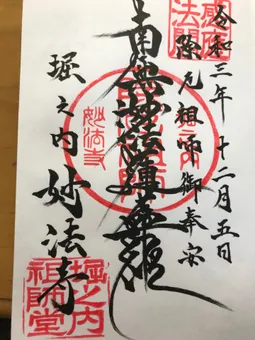 令和三年十二月五日
除厄祖師御奉安
南無妙法蓮華経
妙法寺
堀之内妙法寺
堀之内
祖師堂